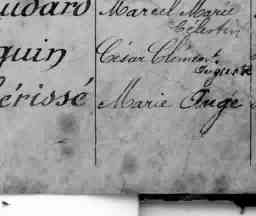 udard Marcel Marie
Célestin
quin César Clément
Auguste
érissé Marie Ange